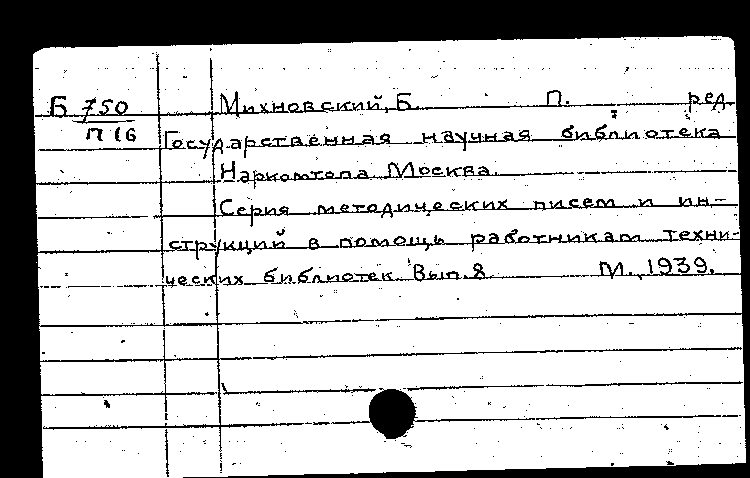 Б 750 Михновский, Б. П. ред.
П 16 Государственная научная библиотека
Наркомтопа. Москва.
Серия методических писем и ин-
струкций в помощь работникам техни-
ческих библиотек. Вып. 8 М., 1939.